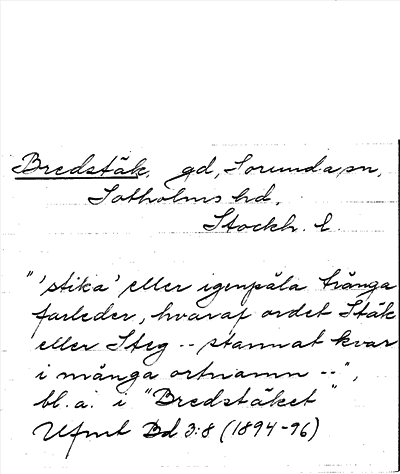 Bredstäk, gd, Sorunda sn,
Sotholms hd,
Stockh. l.
"'stika' eller igenpåla trånga
farleder, hvaraf ordet Stäk
eller Steg -- stannat kvar
i många ortnamn --",
bl.a. i "Bredstäket"
Ufmt Bd 3:8 (1894-96)